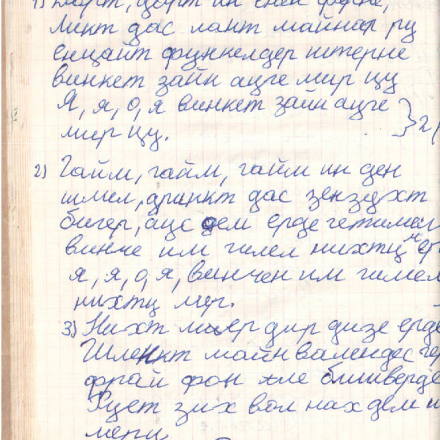 1) Дорт, дорт ин енен ферне,
Ликт дас лант майнар ру
Енцайт функелдер штерне
винкет зайн ауге мир цу
Я, я, о, я винкет зайн ауге } 2
мир цу.
2) Гайм, гайм, гайм ин ден
шмел, дринкт дас зензухт
бигер, аус дем ерде гетимел
винче им гимел нихтц мер
я, я, о, я, винчен им гимел
нихтц мер.
3) Нихт меер дир дизе ерде
Шленкт майн валендес гер
фрай фон але бишверде
Рует зих вол нах дем и
мепи